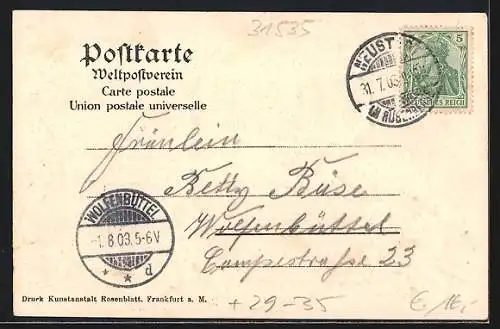 31535
Postkarte
Weltpostverein
Carte postale
Union postale universelle
5
DEUTSCHES REICH
31.7.03
Fräulein
Betty Büse
Wolfenbüttel
Campestraße 23
WOLFENBÜTTEL
-1.8.03.5-6V
* * d
Druck Kunstanstalt Rosenblatt, Frankfurt a. M.
+29-35
€ 16,-